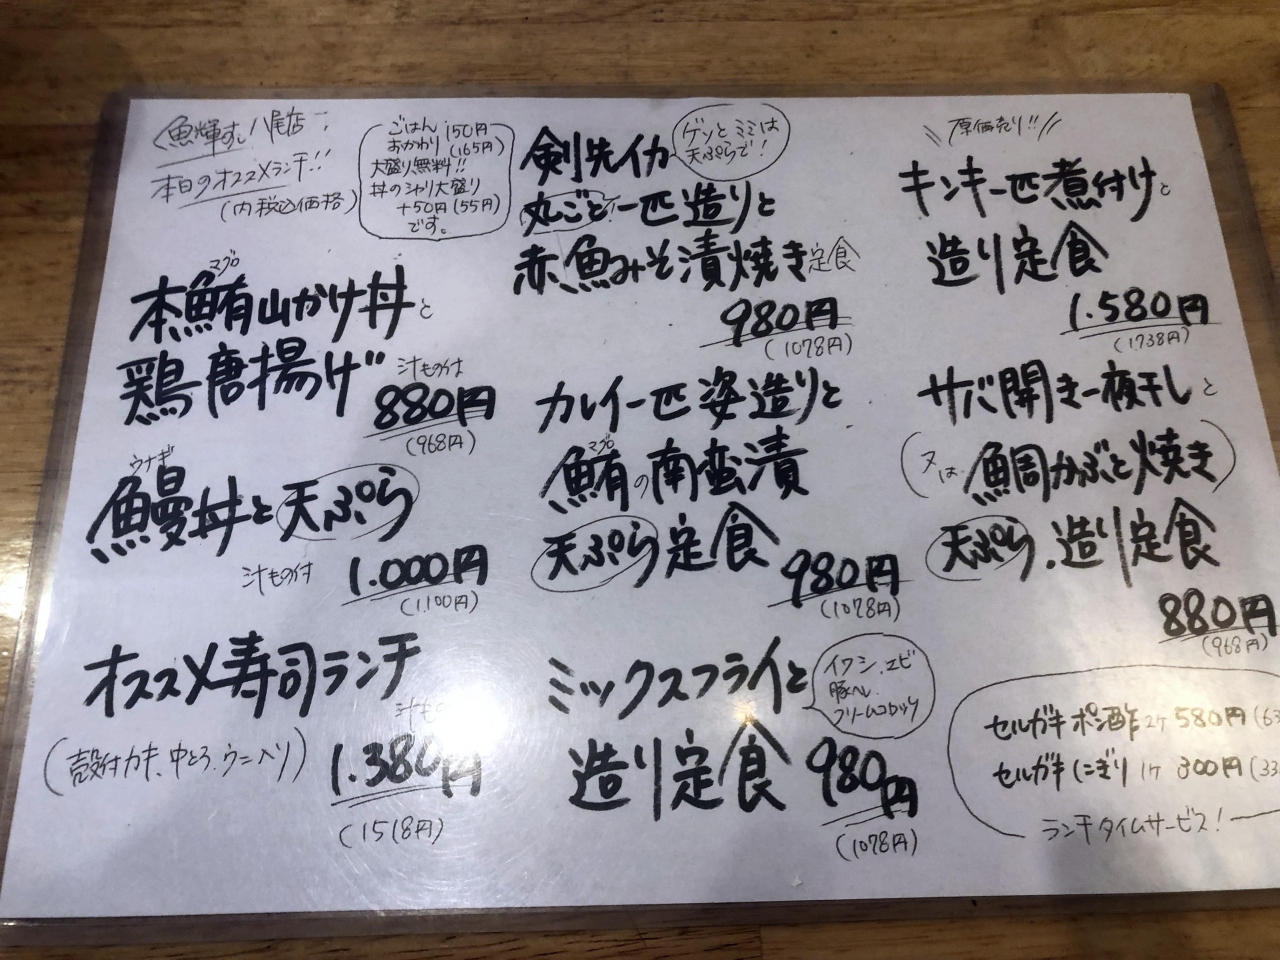 魚輝すし八尾店
本日のオススメランチ!!
(内税込価格)
ごはん
おかわり 150円
(165円)
大盛り無料!!
丼のシャリ大盛り
+50円(55円)
です。
マグロ
本鮪山かけ丼と
鶏唐揚げ
汁もの付
880円
(968円)
ウナギ
鰻丼と天ぷら
汁もの付
1.000円
(1.100円)
オススメ寿司ランチ
汁もの
(殻付カキ、中とろ、ウニ入り)
1.380円
(1518円)
剣先イカ
ゲソとミミは
天ぷらで!
丸ごと一匹造りと
赤魚みそ漬焼き定食
980円
(1078円)
カレイ一匹姿造りと
マグロ
鮪の南蛮漬
天ぷら定食
980円
(1078円)
ミックスフライと
イワシ、エビ
豚ヘレ
クリームコロッケ
造り定食
980円
(1078円)
原価売り!!
キンキ一匹煮付けと
造り定食
1.580円
(1738円)
サバ開き一夜干しと
(又は 鯛かぶと焼き)
天ぷら、造り定食
880円
(968円)
セルガキポン酢 2ケ 580円(63
セルガキにぎり 1ケ 300円(33
ランチタイムサービス!